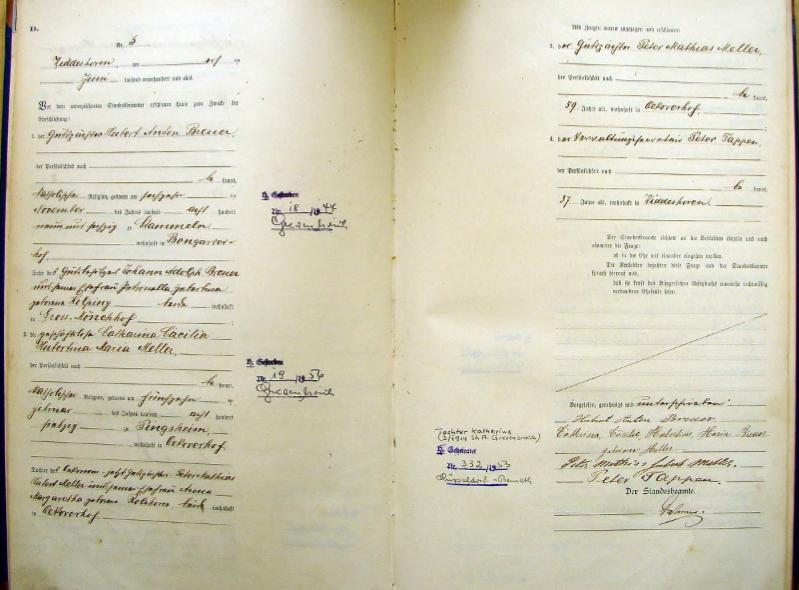 B.
Nr. 5
Hiddeshoven, am
Juni tausend neunhundert und acht.
Vor dem unterzeichneten Standesbeamten erschienen heute zum Zwecke der
Eheschließung:
1. der Gutspächter Hubert Anton Breuer,
der Persönlichkeit nach
be kannt,
katholischer Religion, geboren am sechzehn
November des Jahres tausend acht hundert
neun und sechzig zu Stammeln
, wohnhaft in Bongarter-
hof.
Sohn des Gutsbesitzers Johann Adolph Breuer
und seiner Ehefrau Petronella
geborene beide wohnhaft
in Gross-Mönchhof.
2. die geschäftslose Catharina Cäcilia
Hubertina Maria Meller,
der Persönlichkeit nach
be kannt,
katholischer Religion, geboren am fünfzehn
Februar des Jahres tausend acht hundert
siebzig zu Pingsheim
, wohnhaft in Oekoverhof.
Tochter des jetzt Gutspächter Peter Mathias
Hubert Meller und seiner Ehefrau Anna
Margaretha geborene beide wohnhaft
in Oekoverhof.
H. Gestorben
Nr. 18 /1944
Grevenbroich
H. Gestorben
Nr. 19 /1956
Grevenbroich
Als Zeugen waren zugezogen und erschienen:
3. der Gutspächter Peter Mathias Meller,
der Persönlichkeit nach
be kannt,
59 Jahre alt, wohnhaft in Oekoverhof.
4. der Verwaltungssecretair Peter Tappen,
der Persönlichkeit nach
be kannt,
37 Jahre alt, wohnhaft in Hiddeshoven.
Der Standesbeamte richtete an die Verlobten einzeln und nach
einander die Frage:
ob sie die Ehe mit einander eingehen wollen.
Die Verlobten bejahten diese Frage und der Standesbeamte
sprach hierauf aus,
daß sie kraft des Bürgerlichen Gesetzbuchs nunmehr rechtmäßig
verbundene Eheleute seien.
Vorgelesen, genehmigt und unterschrieben:
Hubert Anton Breuer
Catharina, Cäcilie, Hubertine, Maria Breuer
geborene Meller
Peter Mathias Hubert Meller.
Peter Tappen.
Der Standesbeamte.
Tochter Katharina
Grevenbroich)
H. Geheiratet
Nr. 332 /1953
Düsseldorf - Benrath